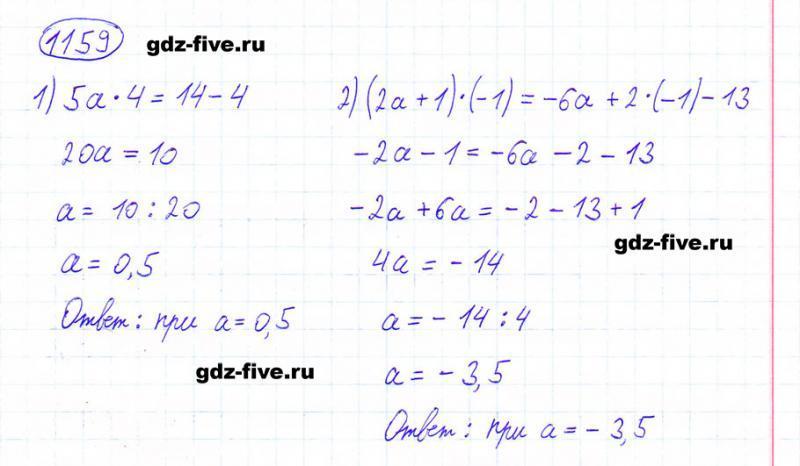 1159 gdz-five.ru
1) 5a · 4 = 14 – 4
20a = 10
a = 10 : 20
a = 0,5
Ответ: при a = 0,5
gdz-five.ru
2) (2a + 1) · (-1) = -6a + 2 · (-1) - 13
-2a - 1 = -6a - 2 - 13
-2a + 6a = -2 - 13 + 1
gdz-five.ru
4a = -14
a = -14 : 4
a = -3,5
Ответ: при a = -3,5